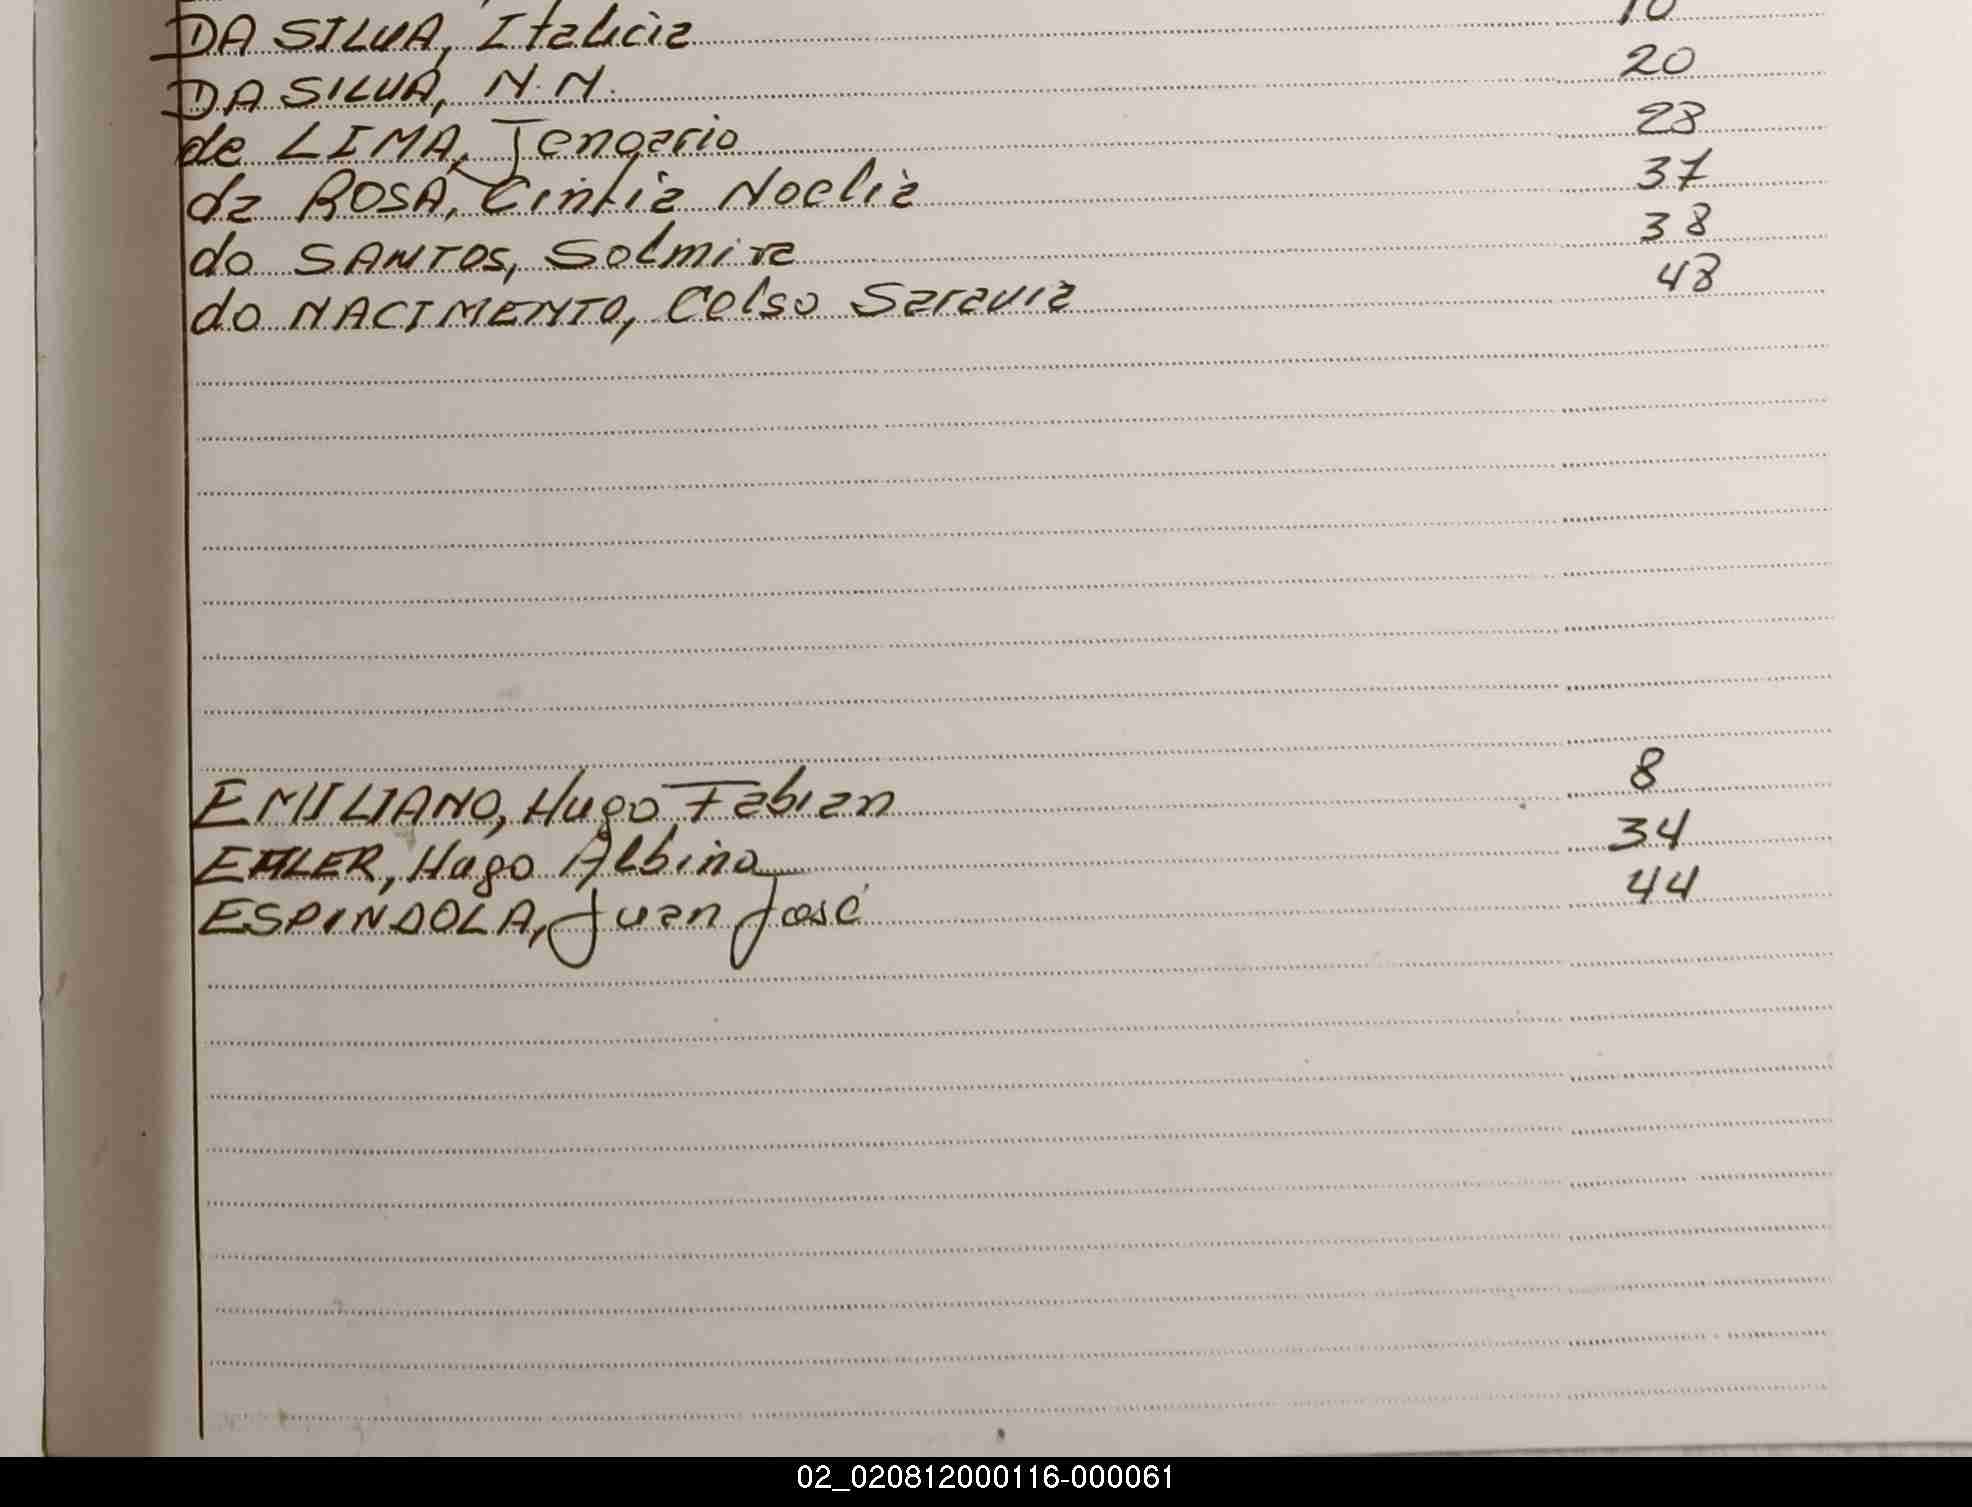 DA SILVA, Italicia 10
DA SILVA, N.N. 20
de LIMA, Tenorio 28
da ROSA, Cintia Noelia 37
do SANTOS, Solmira 38
do NACIMENTO, Celso Saravia 48
EMILIANO, Hugo Fabian 8
EHLER, Hugo Albino 34
ESPINDOLA, Juan José 44
02_020812000116-000061